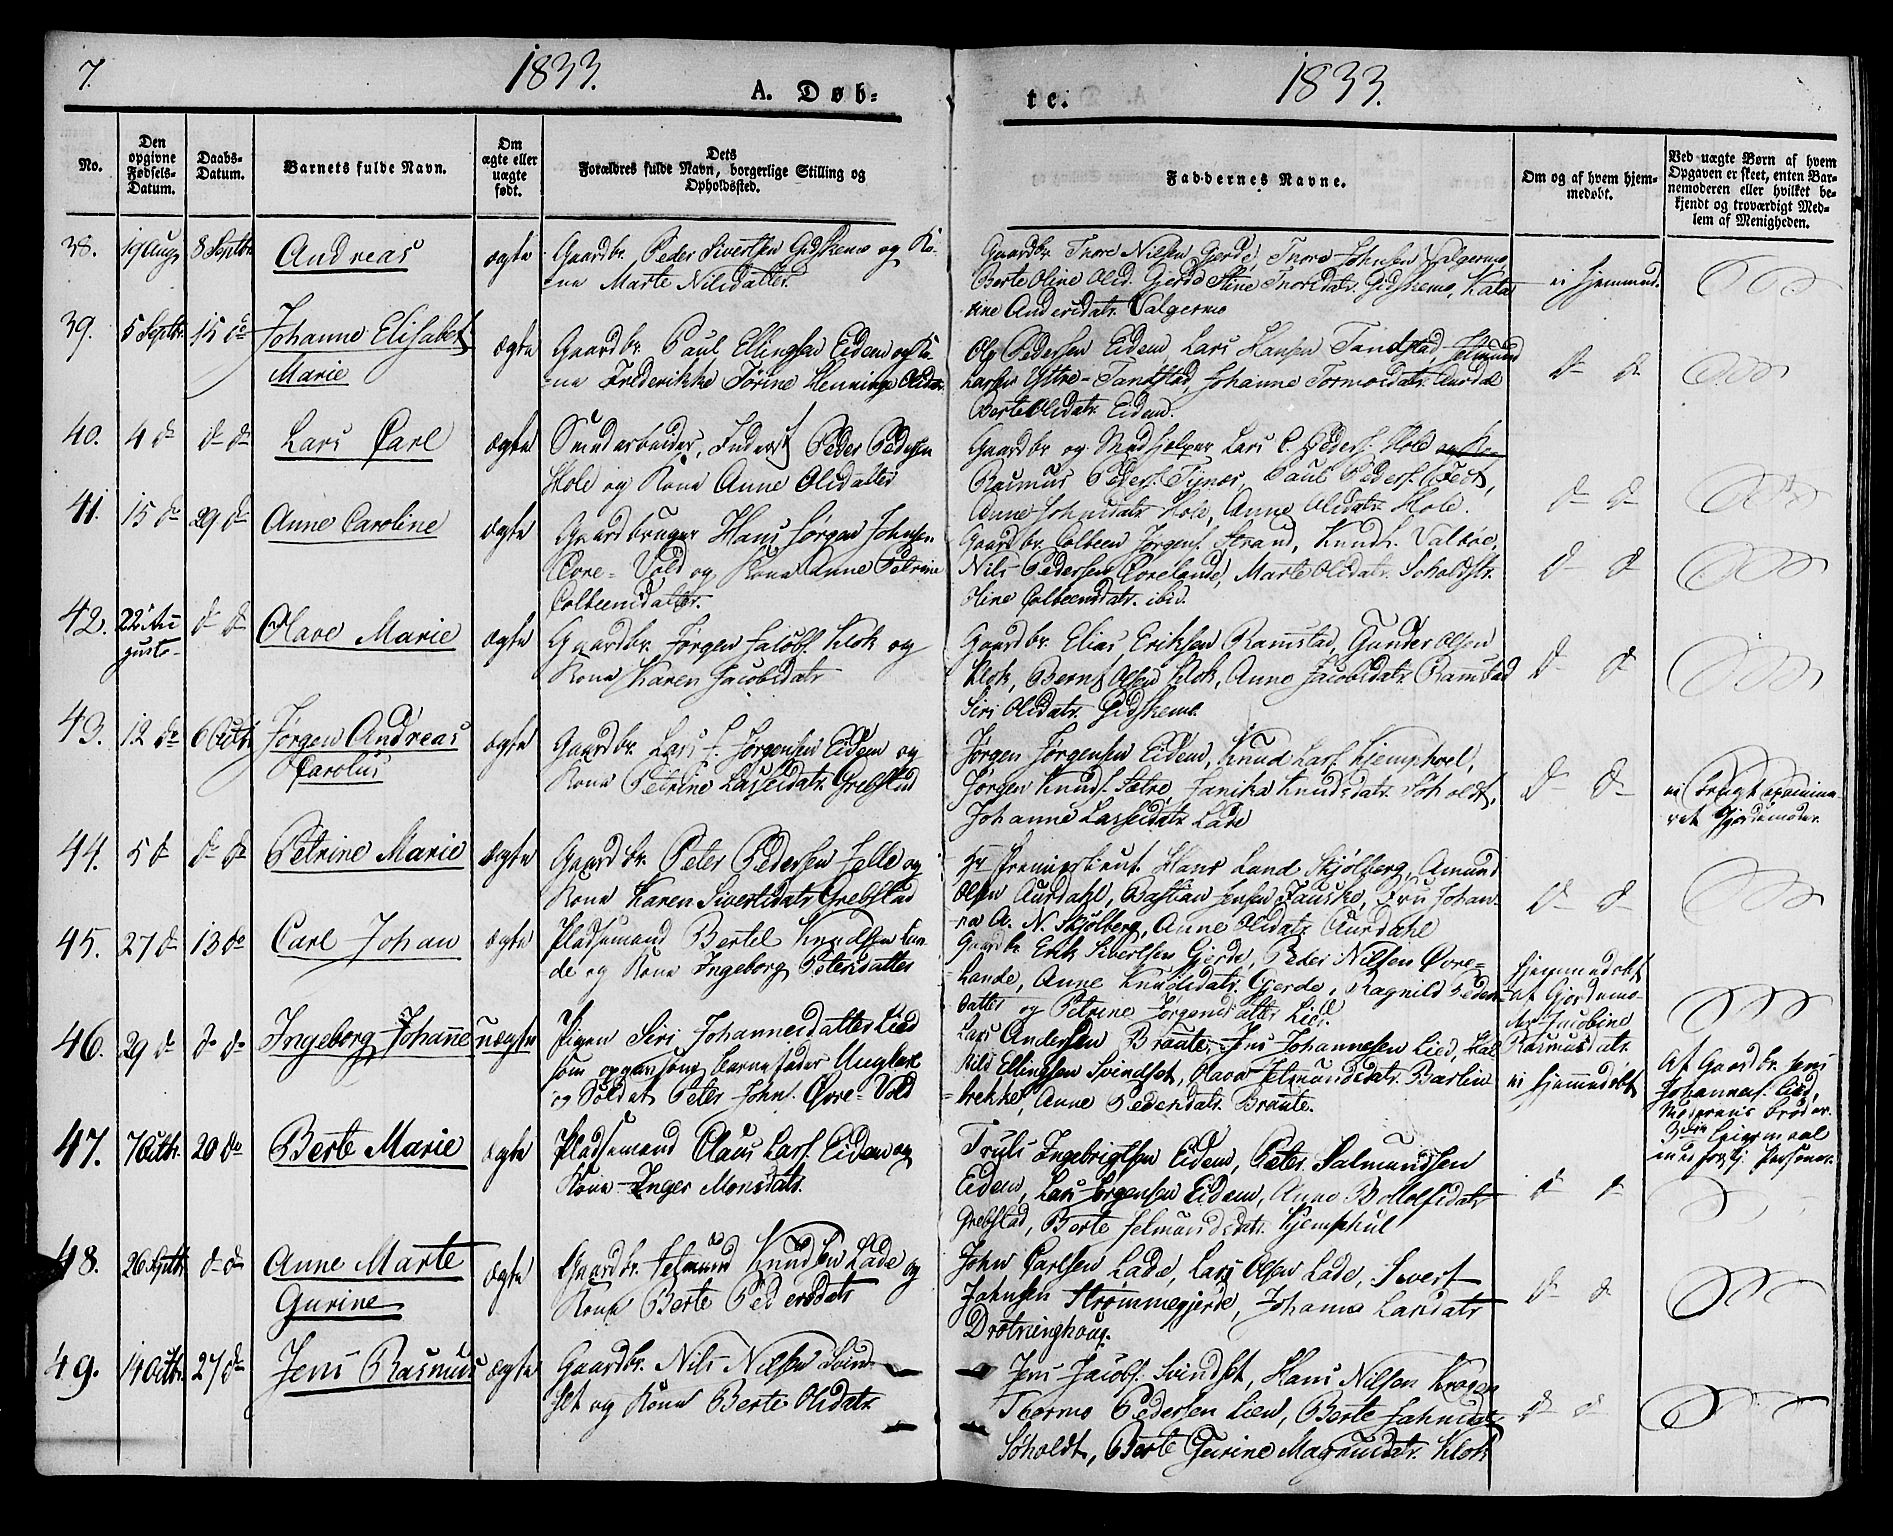 7.
1833.
A. Døb-
te.
1833.
No.
Den
opgivne
Fødsels-
Datum.
Daabs-
Datum.
Barnets fulde Navn.
Om
ægte eller
uægte
født.
Dets
Forældres fulde Navn, borgerlige Stilling og
Opholdssted.
Faddernes Navne.
Om og af hvem hjem-
medøbt.
Ved uægte Børn af hvem
Opgaven er skeet, enten Bar-
nemoderen eller hvilket be-
kjendt og troværdigt Med-
lem af Menigheden.
38. 19 Aug. 8 Septbr. Andreas ægte Gaardbr. Peder Sivertsen Gidskemo og Ko-
ne Marte Nilsdatter
Gaardbr. Thore Nilsen Gjerde, Thore Johnsen Valgermo
Berte Oline Olsd. Gjerde Stine Thoresdatr. Gidskemo, Kata
rine Andersdatr. Valgermo
ei hjemmed.
39. 5 Septbr. 15 de Johanne Elisabet
Marie
ægte Gaardbr. Paul Ellingsen Eidem og Ko-
ne Frederikke Jørine Henninge Olsdr.
Ole Pedersen Eidem, Lars Hansen Tandstad, Jetmund
Larsen Yttre-Tandstad, Johanne Tormodsdatr. Aurdal
Berte Olsdatr. Eidem.
d- d-
40. 4 d- d- d- Lars Carl ægte Smedarbeider, Inderst Peder Pedersen
Hole og Kone Anne Olsdatter
Gaardbr. og Medhjelper Lars C. Peders. Hole
Rasmus Peders. Tynes, Paul Peders. Tveit,
Anne Johnsdatr. Hole, Anne Olsdatr. Hole.
d- d-
41. 15 d- 29 d- Anne Caroline ægte Gaardbruger Hans Jørgen Johnsen
Øvre-Vold og Kone Anne Petrine
Colbeensdatter.
Gaardbr. Colbeen Jørgens. Strand, Knud L. Valbøe,
Nils Pedersen Øvrelande, Marte Olsdatr. Soholdstr.
Oline Colbeensdatr. ibid.
d- d-
42. 22 Au-
gusto- d- d- Olave Marie ægte Gaardbr. Jørgen Jacobs. Klok og
Kone Karen Jacobsdatr.
Gaardbr. Elias Eriksen Ramstad, Gunder Olsen
Klok, Bernt Olsen Klok, Anne Jacobsdatr. Ramstad
Siri Olsdatr. Gidskemo.
d- d-
43. 12 de 6 Octbr. Jørgen Andreas
Carolus
ægte Gaardbr. Lars J. Jørgensen Eidem og
Kone Petrine Lassesdatr. Grebstad
Jørgen Jørgensen Eidem, Knud Lars. Kjemphol,
Jørgen Knuds. Sætre, Janika Knudsdatr. Søholdt,
Johanne Lassesdatr. Lade
d- d-
ei brugt examine-
ret Gjordemoder.
44. 5 d- d- d- Petrine Marie ægte Gaardbr. Peter Pedersen Celle og
Kone Karen Sivertsdatr. Grebstad
Hr. Premierlieut. Hans Lund Skjølberg, Amund
Olsen Aurdahl, Bastian Jensen Fauske, Fru Johan-
ne A. N. Skjølberg, Anne Olsdatr. Aurdahl
d- d-
45. 27 d- 13 de Carl Johan ægte Pladsemand Bertel Knudsen Lun-
de og Kone Ingeborg Petersdatter
Gaardbr. Erik Sivertsen Gjerde, Peder Nilsen Øvre-
lande, Anne Knudsdatr. Gjerde, Ragnild Peders-
datter og Petrine Jørgensdatter Lied.
hjemmedøbt
af Gjordemo-
der Jacobine
Rasmusdatr.
46. 29 d- d- d- Ingeborg Johanne uægte Pigen Siri Johannesdatter Lied
som opgav som Barnefader Ungkarl
og Soldat Peter John. Øvre-Vold
Lars Andersen Braute, Jens Johannesen Lied, Hal
kild Ellingsen Svindset, Olave Jetmundsdatr. Barlin
brekke, Anne Pedersdatr. Braute.
ei hjemmedøbt
Af Gaardbr. Jens
Johannes. Lied,
Moderens Broder.
3die Leiermaal
med forskj. Personer.
47. 7 Octbr. 20 de Berte Marie ægte Pladsemand Claus Lars. Eidem og
Kone Inger Monsdatr.
Truls Ingebrigtsen Eidem, Peter Salmundsen
Eidem, Lars Jørgensen Eidem, Anne B. Rolfsdatr.
Grebstad, Berte Jetmundsdatr. Kjemphul
d- d-
48. 26 Septbr. d- d- Anne Marte
Gurine
ægte Gaardbr. Jetmund Knudsen Lade og
Kone Berte Pedersdatr.
John Carlsen Lade, Lars Olsen Lade, Sivert
Johnsen Strømmegjerde, Johanne Larsdatr.
Drotninghoug.
d- d-
49. 14 Octbr. 27 de Jens Rasmus ægte Gaardbr. Nils Nilsen Svind-
set og Kone Berte Olsdatr.
Jens Jacobs. Svindset, Hans Nilsen Kragen
Thormo Pedersen Lien, Berte Johnsdatr.
Søholdt, Berte Gurine Magnusdatr. Klok
d- d-